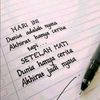 HARI INI
Dunia adalah nyata
Akhirat hanya cerita
tapi
SETELAH MATI
Dunia hanya cerita
Akhirat jadi nyata